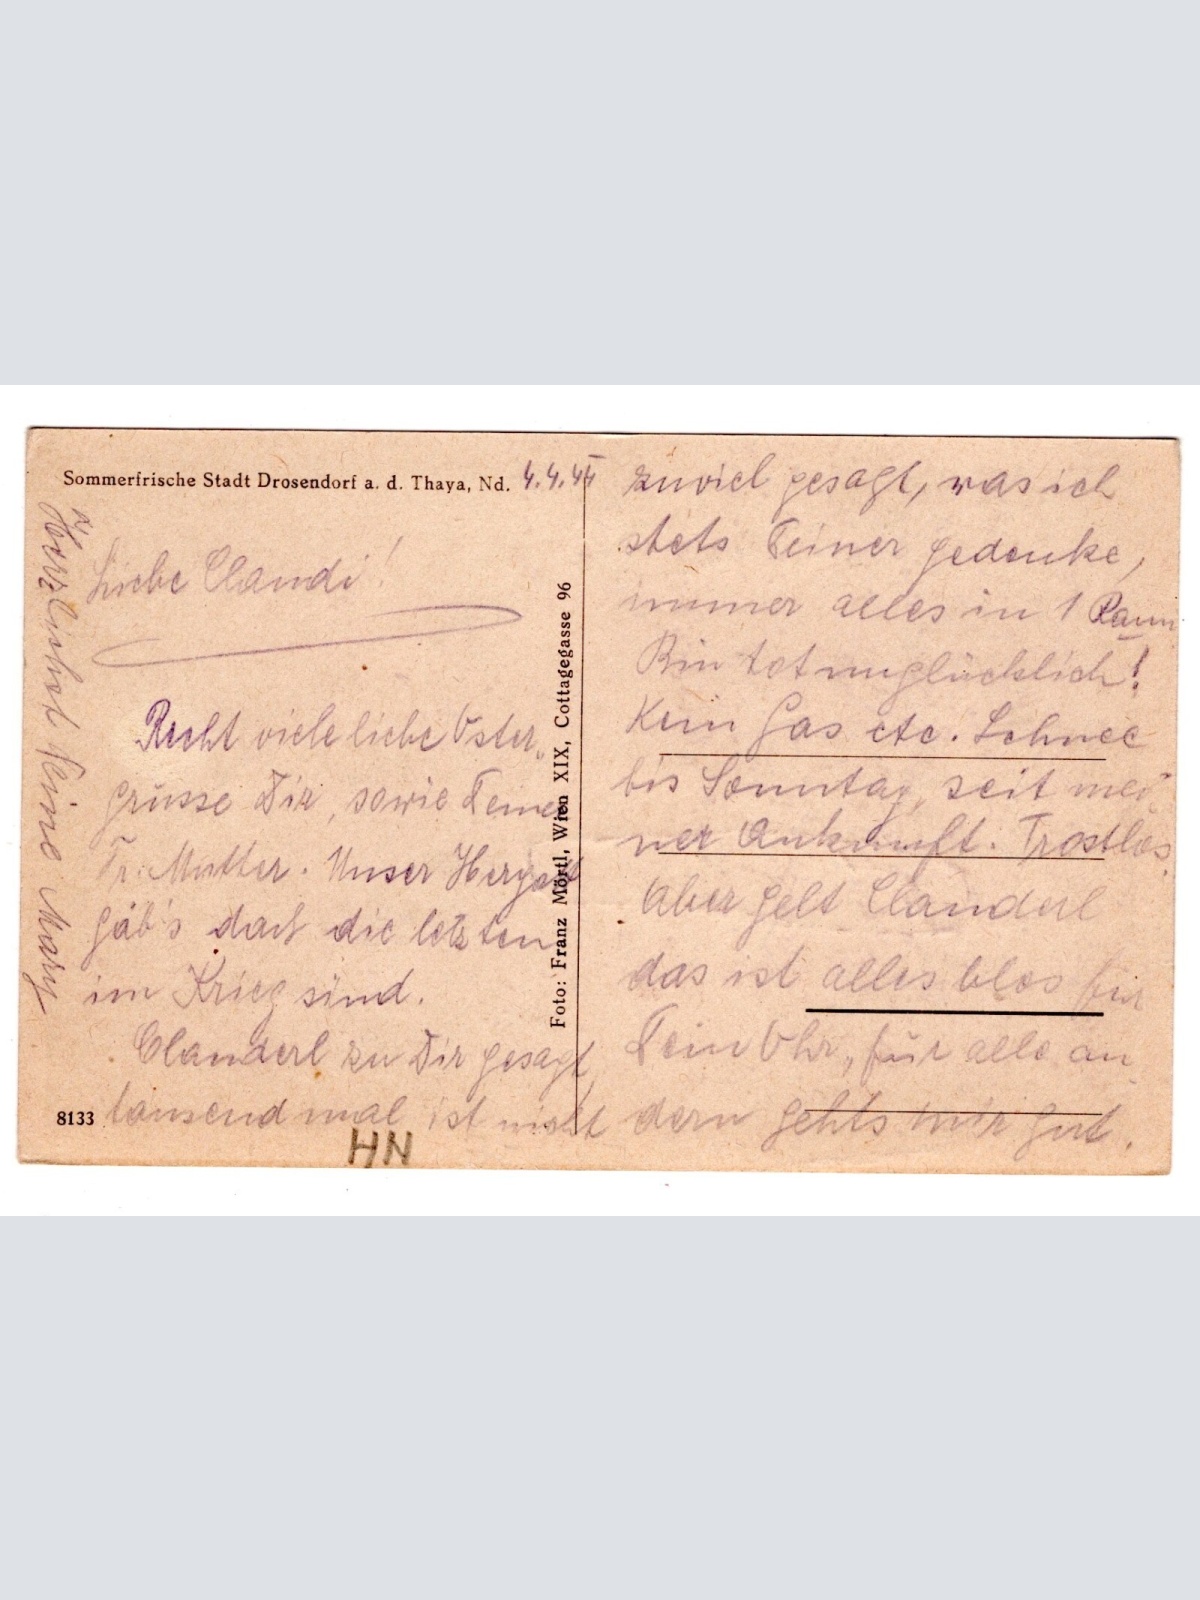 Sommerfrische Stadt Drosendorf a. d. Thaya, Nd. 4.4.44
Liebe Claudi!
Recht viele liebe Oster„
grüsse Dir, sowie Deiner
Fr. Mutter. Unser Hergott
gäb's daß die letzten
im Krieg sind.
Clauderl zu Dir gesagt,
tausend mal ist nicht
zuviel gesagt, was ich
stets Deiner gedenke,
immer alles in 1 Raum
Bin totunglücklich!
Kein Gas etc. Schnee
bis Sonntag seit mei„
ner Ankunft. Trostlos
Aber gelt Clauderl
das ist alles blos für
Dein Ohr, für alle an„
dern gehts mir gut.
Herzlichst Deine Mary
Foto: Franz Mörtl, Wien XIX, Cottagegasse 96
8133
HN